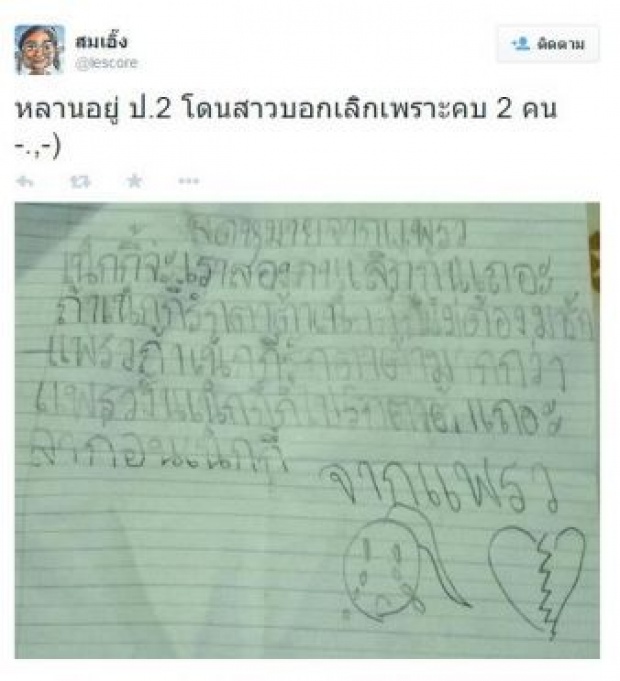 สมเอิ๊ง
@lescore
ติดตาม
หลานอยู่ ป.2 โดนสาวบอกเลิกเพราะคบ 2 คน
-.,-)
จดหมายจากแพรว
เน็กกี้จ๊ะเราสองคนเลิกกันเถอะ
ถ้าเน็กกี้รักตาต้า
แพรวถ้าเน็กกี้รักตาต้ามากกว่า
แพรว เน็กกี้ก็ไป เถอะ
ลาก่อนเน็กกี้
จากแพรว